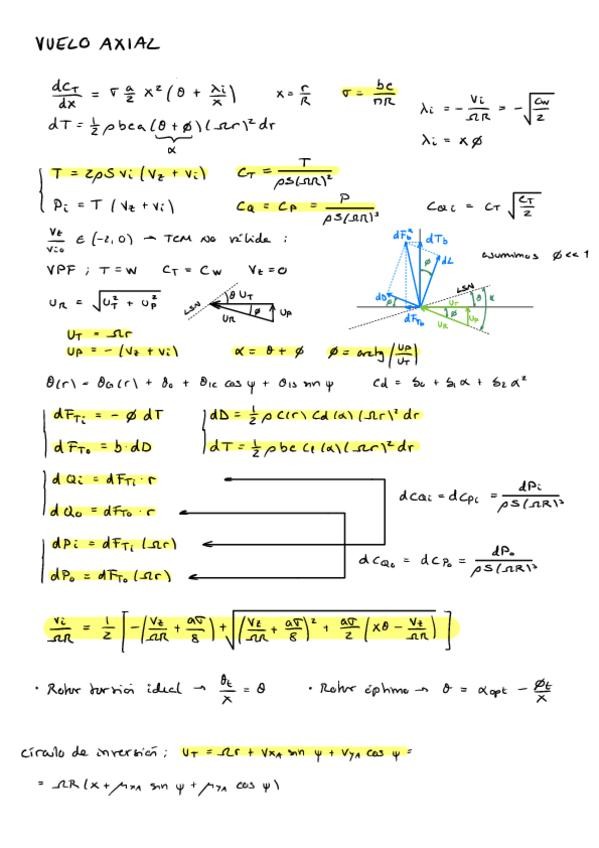 VUELO AXIAL
dC_T/dx = σ a/2 x² (θ + λi/x)   x = r/R   σ = bc/πR
λi = - Vi/ΩR = - √(Cw/2)
dT = 1/2 ρ b c a (θ + ϕ)(Ωr)² dr
α
λi = xϕ
T = 2ρS vi (Vz + vi)   C_T = T/(ρS(ΩR)²)
Pi = T (Vz + vi)   C_Q = C_P = P/(ρS(ΩR)³)   C_Qi = C_T √(C_T/2)
Vz/vio ∈ (-2,0) → TCM no válida :
VPF ; T = W   C_T = C_W   Vz = 0
asumimos ϕ << 1
U_R = √(U_T² + U_P²)
LSN θ U_T ϕ U_R U_P
dF_b dT_b dL ϕ dD dF_Tb LSN U_T θ α ϕ U_P U_R
U_T = Ωr
U_P = - (Vz + vi)   α = θ + ϕ   ϕ = arctg (U_P/U_T)
θ(r) = θ_G(r) + θ_0 + θ_1c cos ψ + θ_1s sin ψ   Cd = δ_0 + δ_1 α + δ_2 α²
dF_Ti = - ϕ dT   dD = 1/2 ρ C(r) Cd(α)(Ωr)² dr
dF_To = b·dD   dT = 1/2 ρ b c Cl(α)(Ωr)² dr
dQi = dF_Ti · r
dC_Qi = dC_Pi = dPi/(ρS(ΩR)³)
dQo = dF_To · r
dPi = dF_Ti (Ωr)
dC_Qo = dC_Po = dPo/(ρS(ΩR)³)
dPo = dF_To (Ωr)
vi/ΩR = 1/2 [ -(Vz/ΩR + aσ/8) + √((Vz/ΩR + aσ/8)² + aσ/2 (xθ - Vz/ΩR)) ]
· Rotor torsión ideal → θt/x = θ   · Rotor óptimo → θ = αopt - ϕt/x
círculo de inversión ; U_T = Ωr + V_xA sin ψ + V_yA cos ψ =
= ΩR (x + μ_xA sin ψ + μ_yA cos ψ)